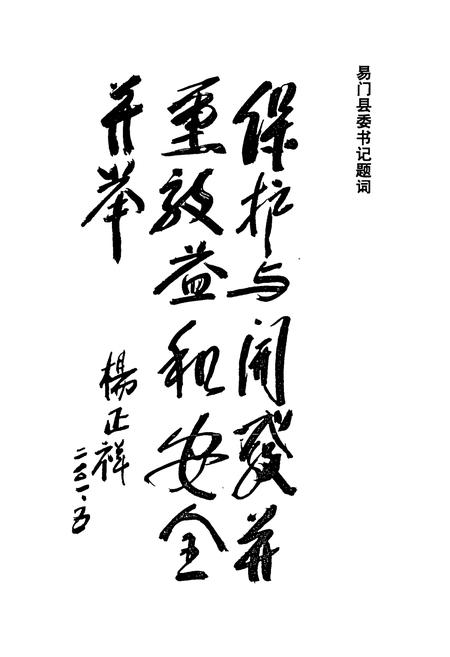 易门县委书记题词
保护与開發并
重效益和安全
并举
楊正祥
二〇〇一.五